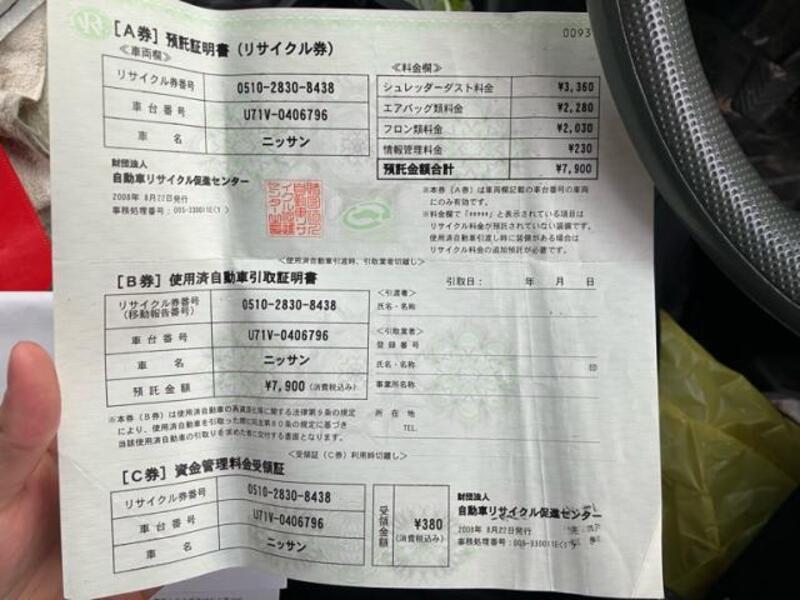 0093
[A券] 預託証明書 (リサイクル券)
≪車両欄≫
リサイクル券番号 0510-2830-8438
車台番号 U71V-0406796
車名 ニッサン
≪料金欄≫
シュレッダーダスト料金 ¥3,360
エアバッグ類料金 ¥2,280
フロン類料金 ¥2,030
情報管理料金 ¥230
預託金額合計 ¥7,900
財団法人
自動車リサイクル促進センター
2008年 8月22日発行
※本券(A券)は車両欄記載の車台番号の車両
にのみ有効です。
※料金欄で「*****」と表示されている項目は
リサイクル料金が預託されていない装備です。
使用済自動車引渡し時に装備がある場合は
リサイクル料金の追加預託が必要です。
<使用済自動車引渡時、引取業者切離し>
[B券] 使用済自動車引取証明書
引取日: 年 月 日
リサイクル券番号
(移動報告番号) 0510-2830-8438
車台番号 U71V-0406796
車名 ニッサン
預託金額 ¥7,900 (消費税込み)
<引渡者>
氏名・名称
<引取業者>
登録番号
氏名・名称 印
事業所名称
所在地
TEL.
※本券(B券)は使用済自動車の再資源化等に関する法律第9条の規定
により、使用済自動車を引取った際に同法第80条の規定に基づき
当該使用済自動車の引取りを求めた者に交付する書面となります。
<受領証(C券)利用時切離し>
[C券] 資金管理料金受領証
リサイクル券番号 0510-2830-8438
車台番号 U71V-0406796
車名 ニッサン
受領金額 ¥380
(消費税込み)
財団法人
自動車リサイクル促進センター
2008年 8月22日発行